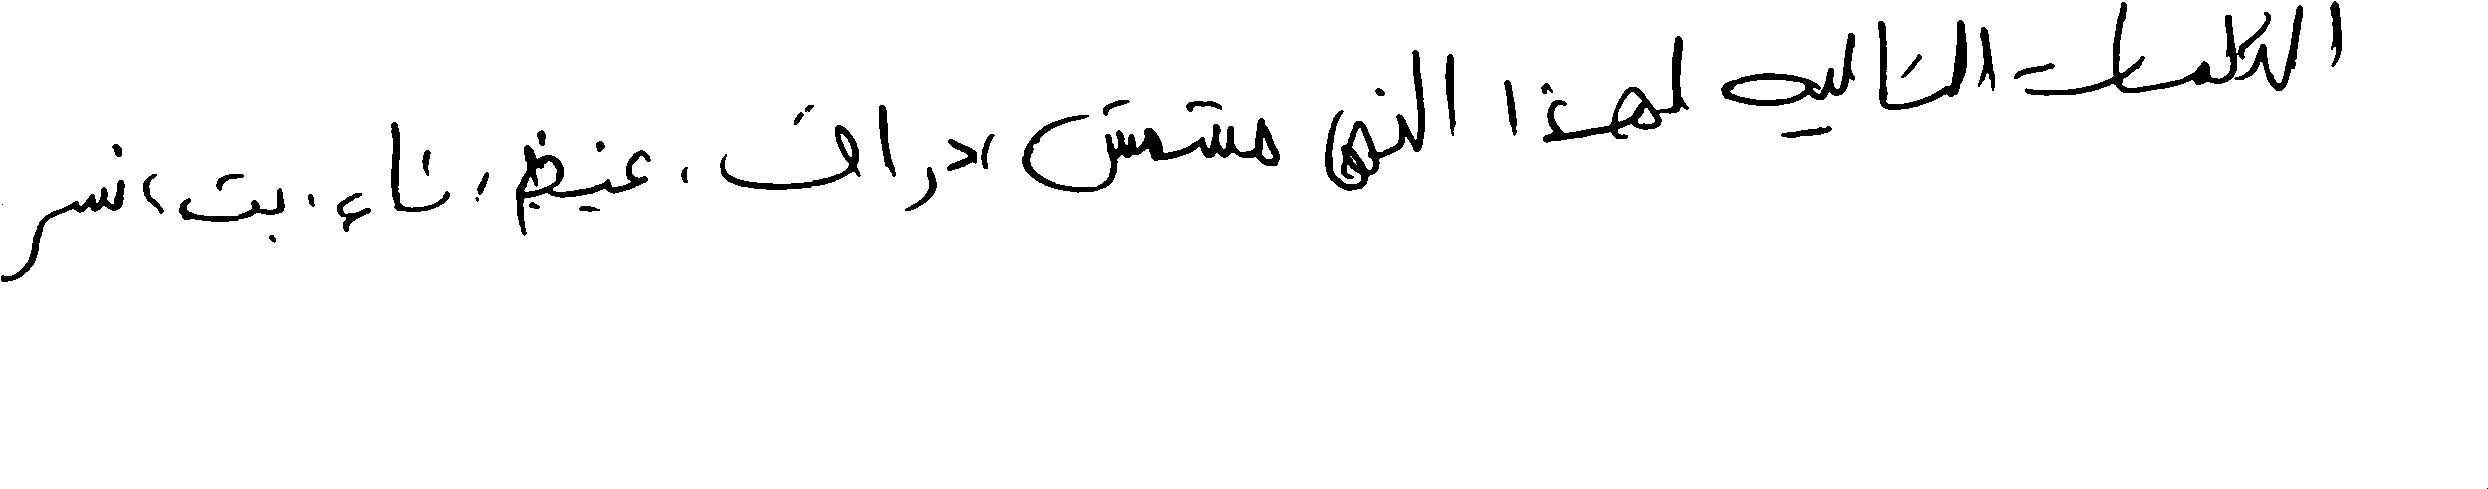 الكلمات التاليه لهذا النص مشمش، دراق، غيظ، ناء، بت، نسر